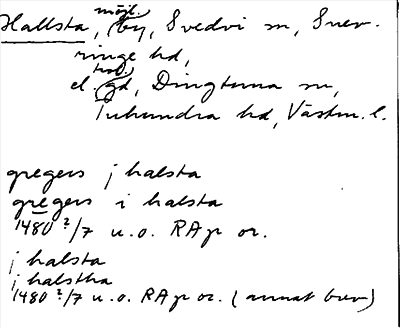 Hallsta, (möjl. by, Svedvi sn, Snev-
ringe hd,
el. (trol. gd, Dingtuna sn,
Tuhundra hd, Västm. l.
gregers j halsta
gregers i halsta
1480 2/7 u.o. RAp or.
j halsta
j halstha
1480 2/7 u.o. RAp or. (annat brev)